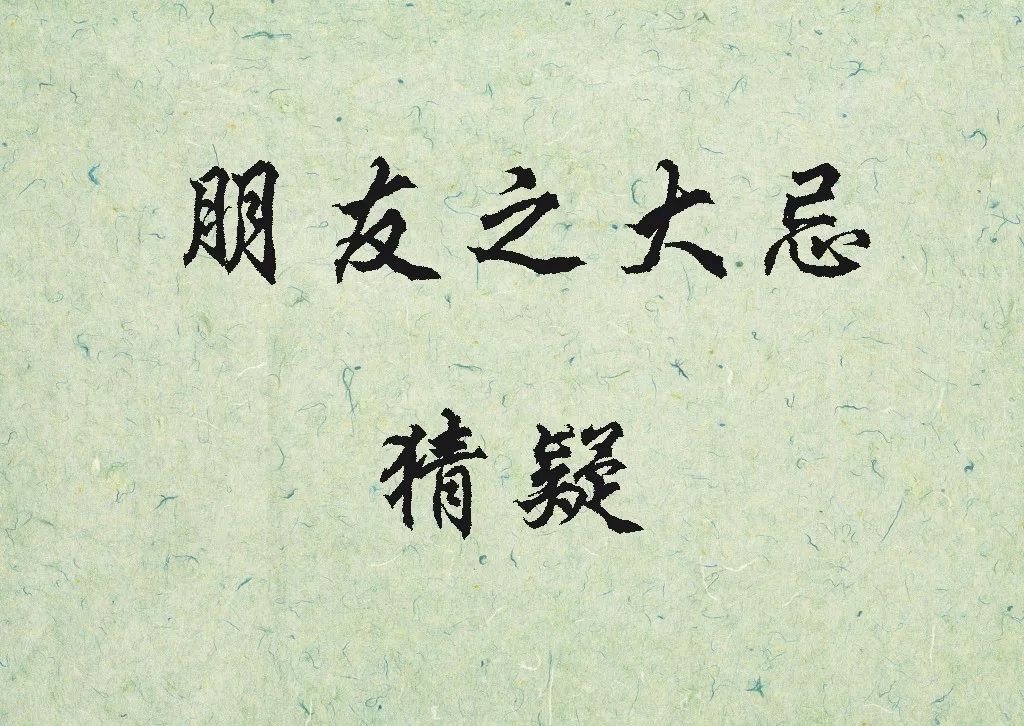 朋友之大忌
猜疑